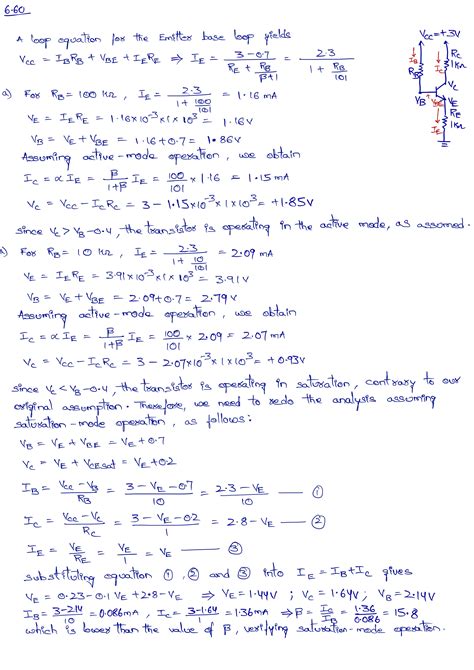 6.60
A loop equation for the Emitter base loop yields
Vcc = IBRB + VBE + IERE ⇒ IE = (3-0.7)/(RE + RB/(β+1)) = 2.3/(1 + RB/101)
Vcc=+3V
IB
IC
RC
1kΩ
RB
VC
VB
VBE
VE
RE
1kΩ
IE
a) For RB=100 kΩ, IE = 2.3/(1 + 100/101) = 1.16 mA
VE = IERE = 1.16×10^-3 × 1×10^3 = 1.16V
VB = VE + VBE = 1.16+0.7 = 1.86V
Assuming active-mode operation, we obtain
IC = αIE = β/(1+β) IE = 100/101 × 1.16 = 1.15 mA
VC = VCC - ICRC = 3 - 1.15×10^-3 × 1×10^3 = +1.85V
since VC > VB-0.4, the transistor is operating in the active mode, as assumed.
For RB= 10 kΩ, IE = 2.3/(1 + 10/101) = 2.09 mA
VE = IERE = 3.91×10^-3 × 1×10^3 = 3.91V
VB = VE + VBE = 2.09+0.7 = 2.79V
Assuming active-mode operation, we obtain
IC = αIE = β/(1+β) IE = 100/101 × 2.09 = 2.07 mA
VC = VCC - ICRC = 3 - 2.07×10^-3 × 1×10^3 = +0.93V
since VC < VB-0.4, the transistor is operating in saturation, contrary to our
original assumption. Therefore, we need to redo the analysis assuming
saturation-mode operation, as follows:
VB = VE + VBE = VE+0.7
VC = VE + VCEsat = VE+0.2
IB = (VCC - VB)/RB = (3-VE-0.7)/10 = (2.3-VE)/10 — ①
IC = (VCC-VC)/RC = (3-VE-0.2)/1 = 2.8-VE — ②
IE = VE/RE = VE/1 = VE — ③
substituting equation ①, ② and ③ into IE = IB+IC gives
VE = 0.23-0.1VE+2.8-VE ⇒ VE=1.44V ; VC=1.64V ; VB=2.14V
IB = (3-2.14)/10 = 0.086mA, IC = (3-1.64)/1 = 1.36mA ⇒ β = IC/IB = 1.36/0.086 = 15.8
which is lower than the value of β, verifying saturation-mode operation.